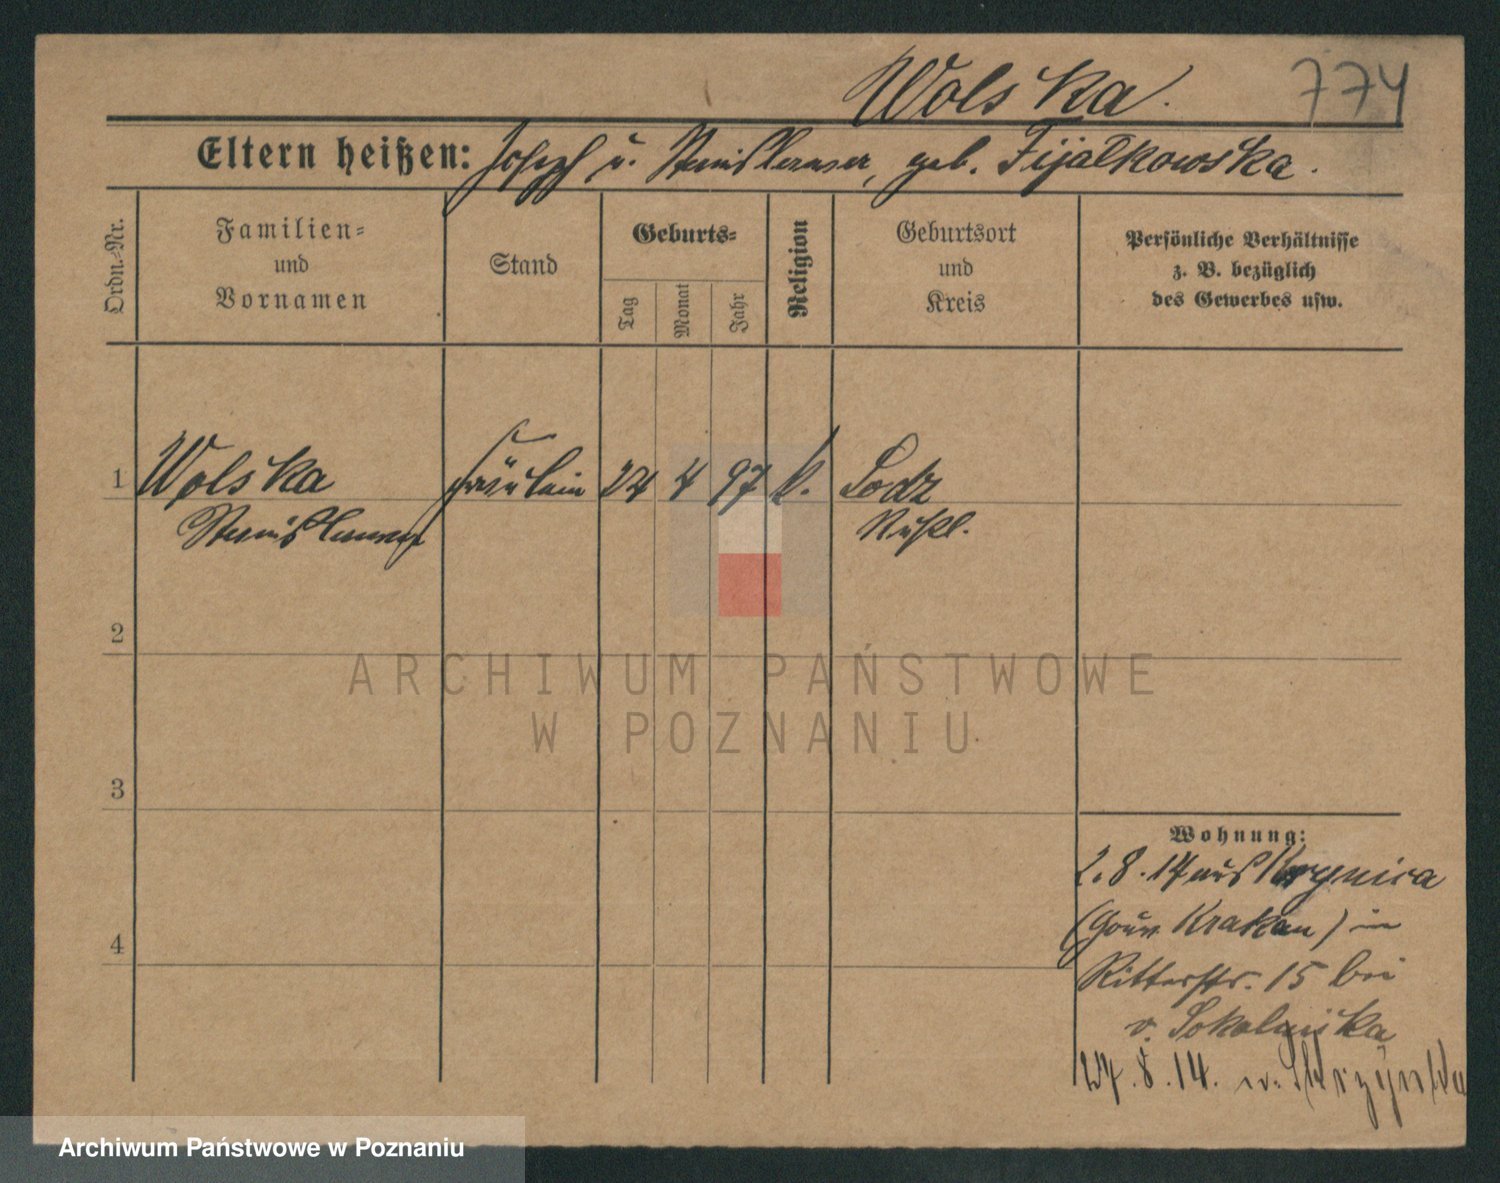 Wolska.
774
Eltern heißen: Joseph u. Stanislawa, geb. Fijalkowska.
Ordn.-Nr.
Familien-
und
Vornamen
Stand
Geburts-
Tag
Monat
Jahr
Religion
Geburtsort
und
Kreis
Persönliche Verhältnisse
z. B. bezüglich
des Gewerbes usw.
1 Wolska Fräulein 24 4 97 k. Lodz
Stanislawa Rußl.
2
ARCHIWUM PAŃSTWOWE
W POZNANIU
3
Wohnung:
2.8.14 aus Krynica
(Gouv. Krakau) in
4
Ritterstr. 15 bei
v. Sokolniska
27.8.14. n.
Archiwum Państwowe w Poznaniu